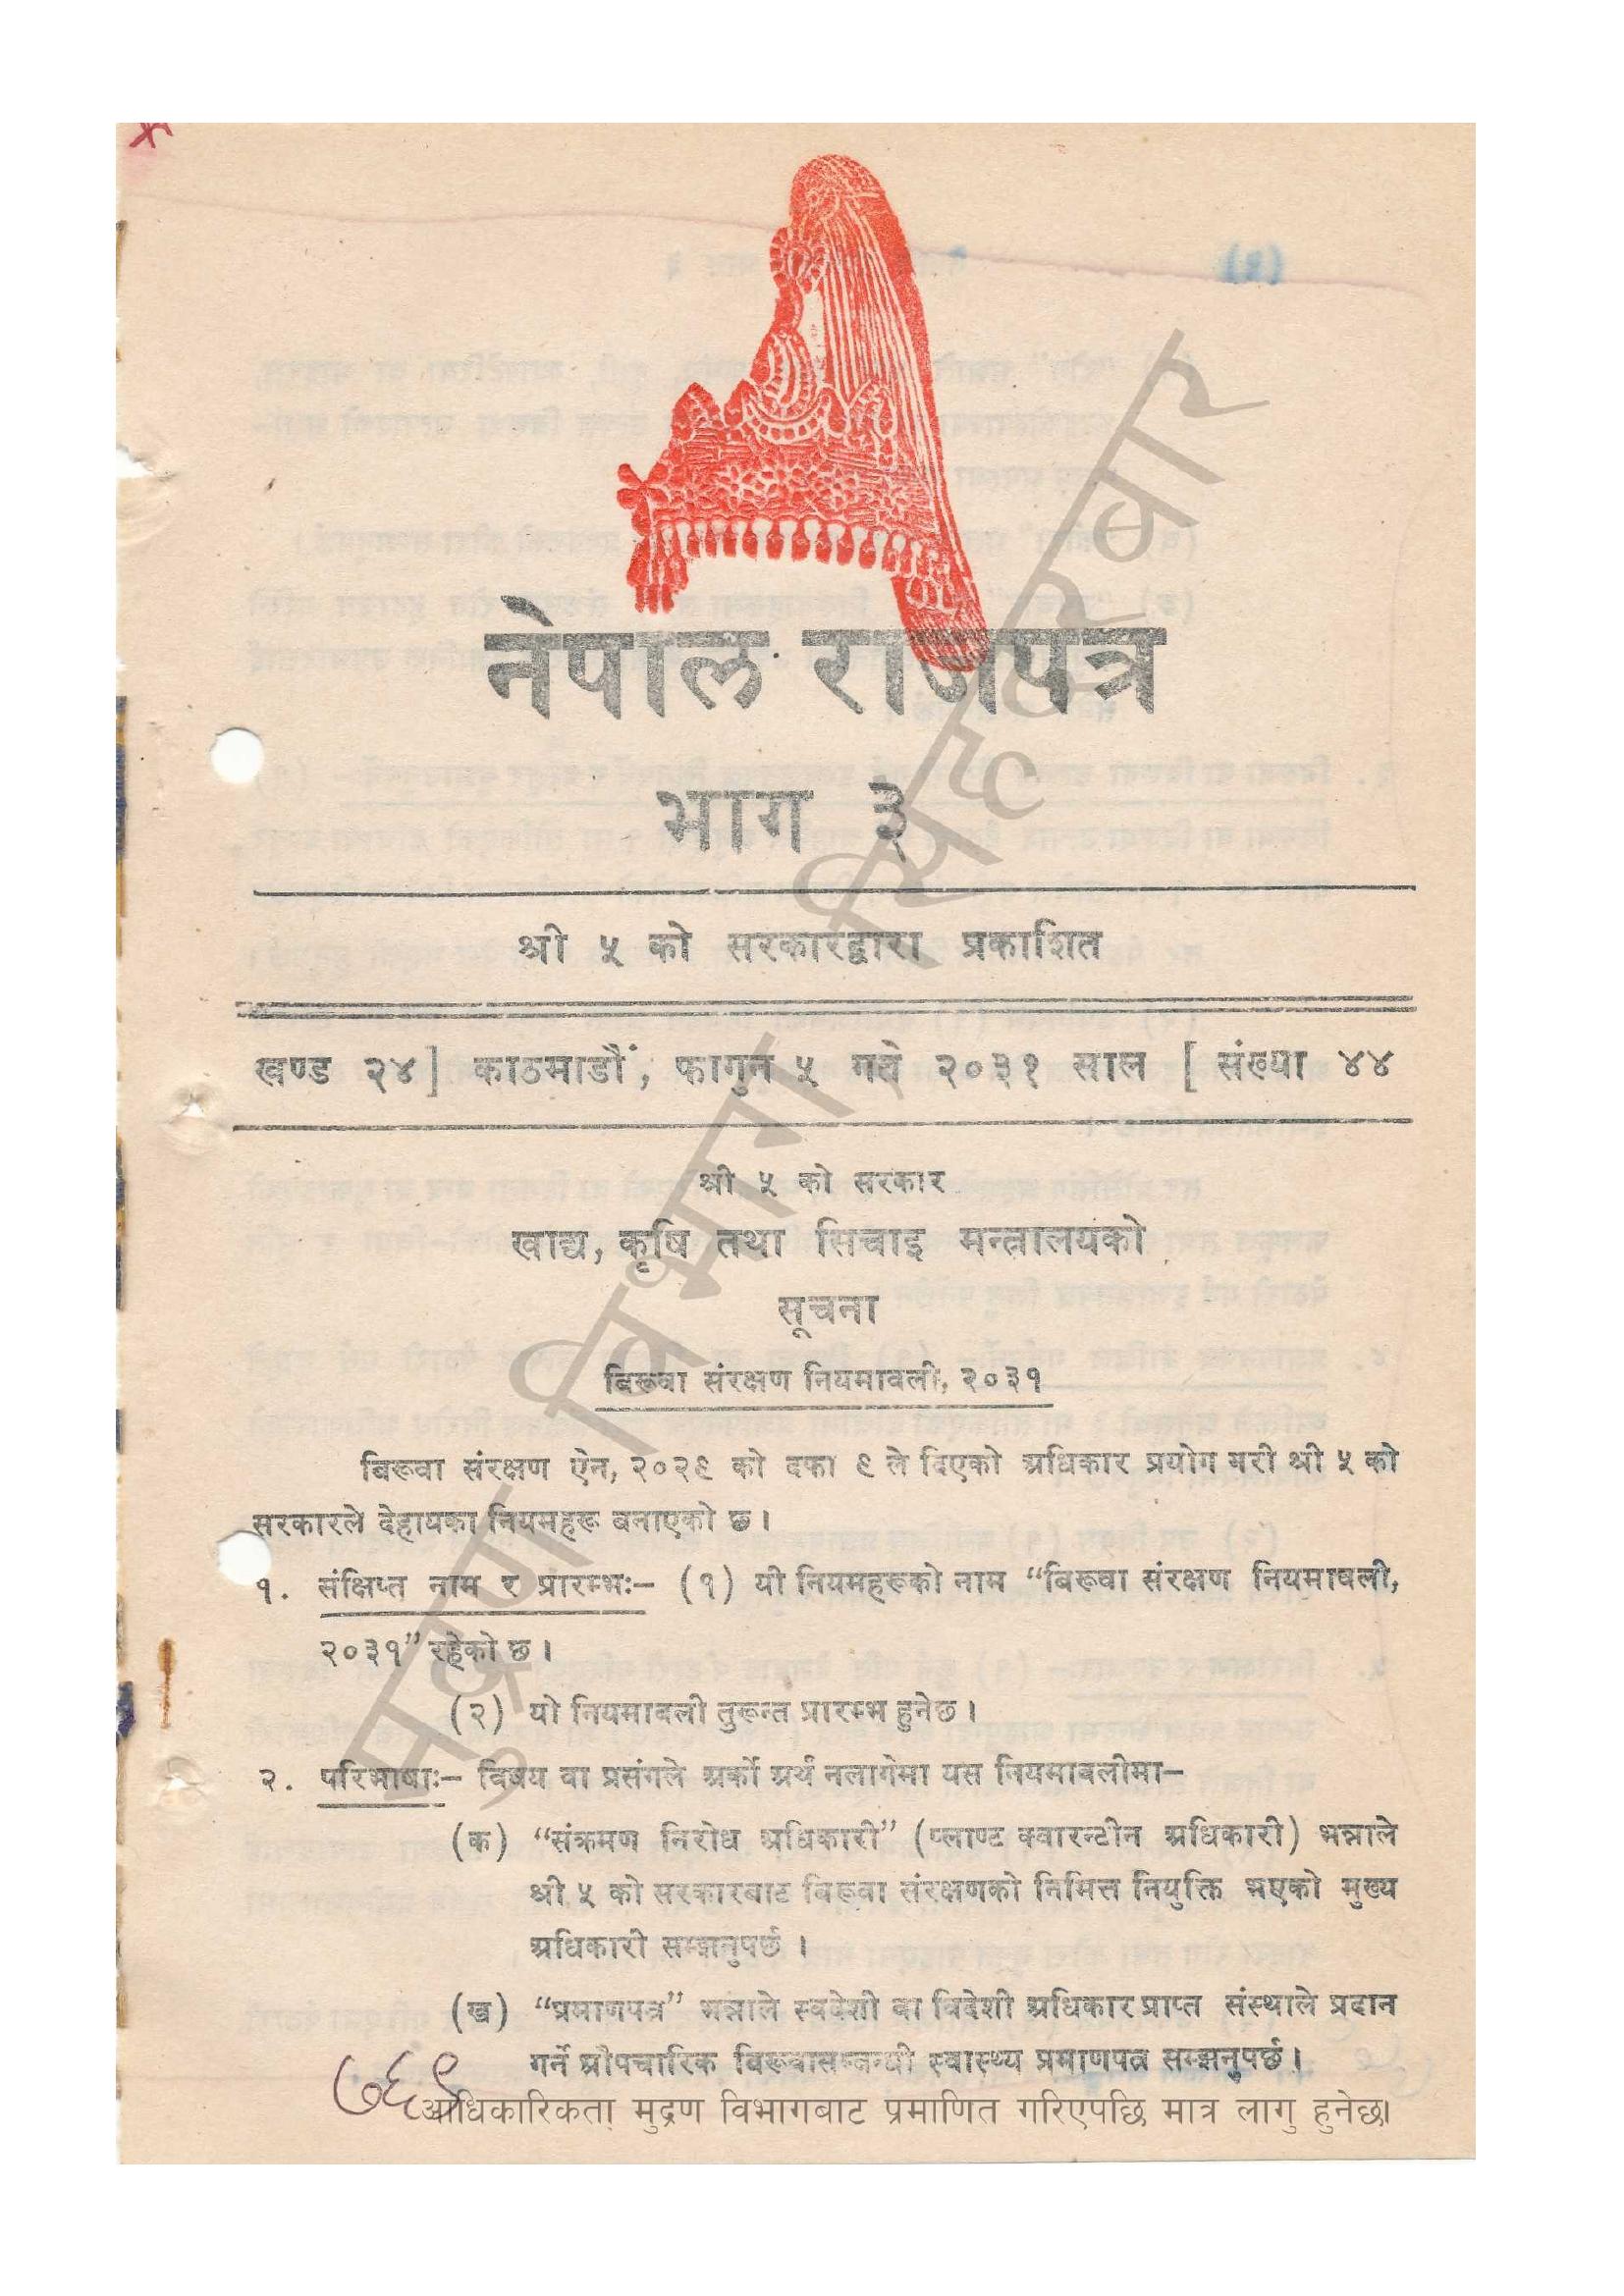 नेपाल राजपत्र
भाग ३
श्री ५ को सरकारद्वारा प्रकाशित
खण्ड २४] काठमाडौं, फागुन ५ गते २०३१ साल [ संख्या ४४
श्री ५ को सरकार
खाद्य, कृषि तथा सिचाइ मन्त्रालयको
सूचना
बिरूवा संरक्षण नियमावली, २०३१
बिरूवा संरक्षण ऐन, २०२९ को दफा ९ ले दिएको अधिकार प्रयोग गरी श्री ५ को
सरकारले देहायका नियमहरू बनाएको छ।
१. संक्षिप्त नाम र प्रारम्भः– (१) यी नियमहरूको नाम “बिरूवा संरक्षण नियमावली,
२०३१” रहेको छ।
(२) यो नियमावली तुरून्त प्रारम्भ हुनेछ।
२. परिभाषाः– विषय वा प्रसंगले अर्को अर्थ नलागेमा यस नियमावलीमा–
(क) “संक्रमण निरोध अधिकारी” (प्लाण्ट क्वारन्टीन अधिकारी) भन्नाले
श्री ५ को सरकारबाट बिरूवा संरक्षणको निमित्त नियुक्ति भएको मुख्य
अधिकारी सम्झनुपर्छ।
(ख) “प्रमाणपत्र” भन्नाले स्वदेशी वा विदेशी अधिकार प्राप्त संस्थाले प्रदान
गर्ने औपचारिक बिरूवासम्बन्धी स्वास्थ्य प्रमाणपत्र सम्झनुपर्छ।
७६९
आधिकारिकता मुद्रण विभागबाट प्रमाणित गरिएपछि मात्र लागु हुनेछ।
मुद्रण विभाग, सिंहदरबार